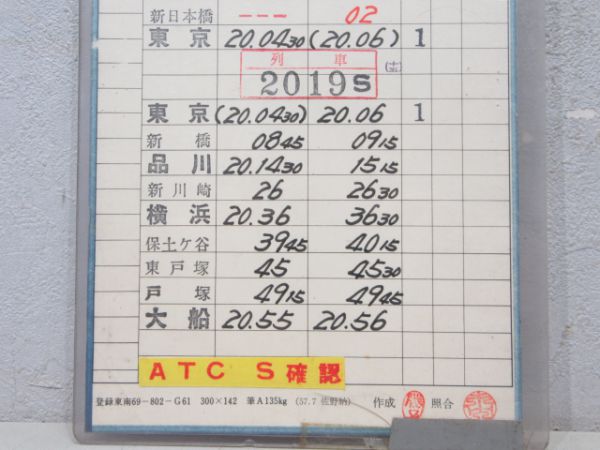 新日本橋 ーーー 02
東京 20.04 30 (20.06) 1
列車
2019S
東京 (20.04 30) 20.06 1
新橋 08 45 09 15
品川 20.14 30 15 15
新川崎 26 26 30
横浜 20.36 36 30
保土ケ谷 39 45 40 15
東戸塚 45 45 30
戸塚 49 15 49 45
大船 20.55 20.56
ATC S 確認
登録東南69-802-G61 300×142 筆A135kg (57.7 佐野納) 作成 照合